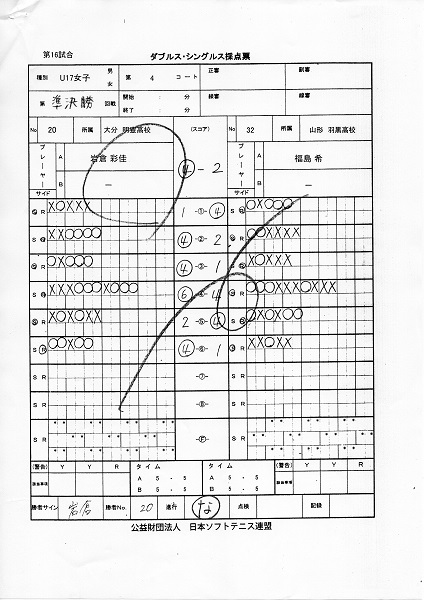 第16試合 ダブルス・シングルス採点票
種別 U17女子 男 女 第 4 コート 正審 副審
第 準決勝 回戦 開始 : 分 終了 : 分 線審 線審
No 20 所属 大分 明豊高校 (スコア) No 32 所属 山形 羽黒高校
プレーヤー A 岩倉 彩佳 ④-2 プレーヤー A 福島 希
B ー B ー
サイド サイド
S R XOXXX 1 -①- ④ S R OXOOO
S R XXOOOO ④ -②- 2 S R OOXXXX
S R OXOOO ④ -③- 1 S R XOXXX
S R XXXOOOXOOO ⑥ -④- 4 S R OOOXXXOXXX
S R XOXOXX 2 -⑤- ④ S R OXOXOO
S R OOXOO ④ -⑥- 1 S R XXOXX
S R -⑦- S R
S R -⑧- S R
S R -Ⓕ- S R
(警告) Y Y R タイム タイム (警告) Y Y R
A 5-5 A 5-5
B 5-5 B 5-5
勝者サイン 岩倉 勝者No. 20 進行 な 点検 記録
公益財団法人 日本ソフトテニス連盟